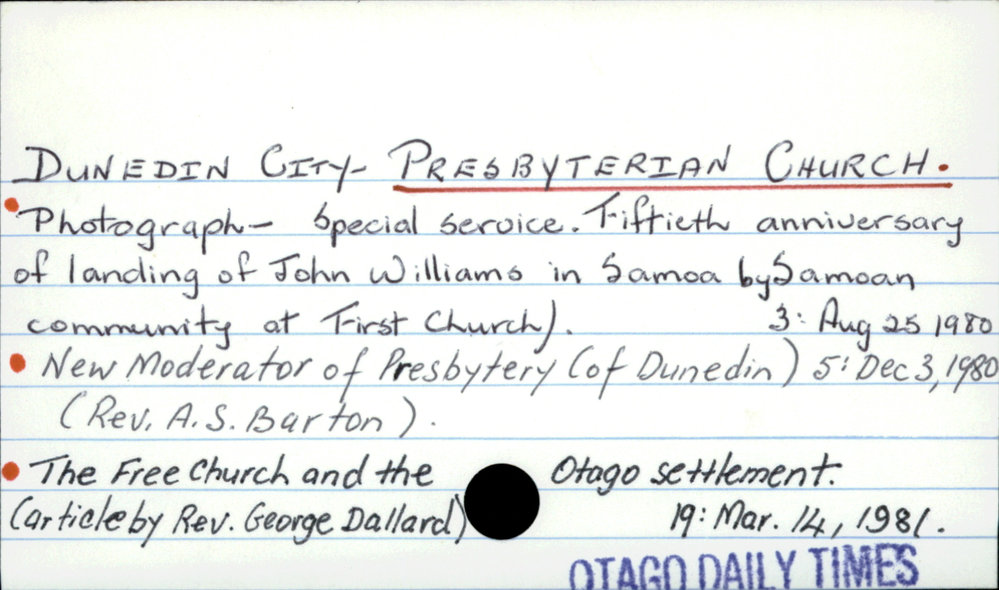 DUNEDIN CITY- PRESBYTERIAN CHURCH.
Photograph- Special service. Fiftieth anniversary
of landing of John Williams in Samoa by Samoan
community at First Church). 3: Aug 25 1980
New Moderator of Presbytery (of Dunedin) 5: Dec 3, 1980
(Rev. A. S. Barton).
The Free Church and the Otago settlement.
(article by Rev. George Dallard) 19: Mar. 14, 1981.
OTAGO DAILY TIMES